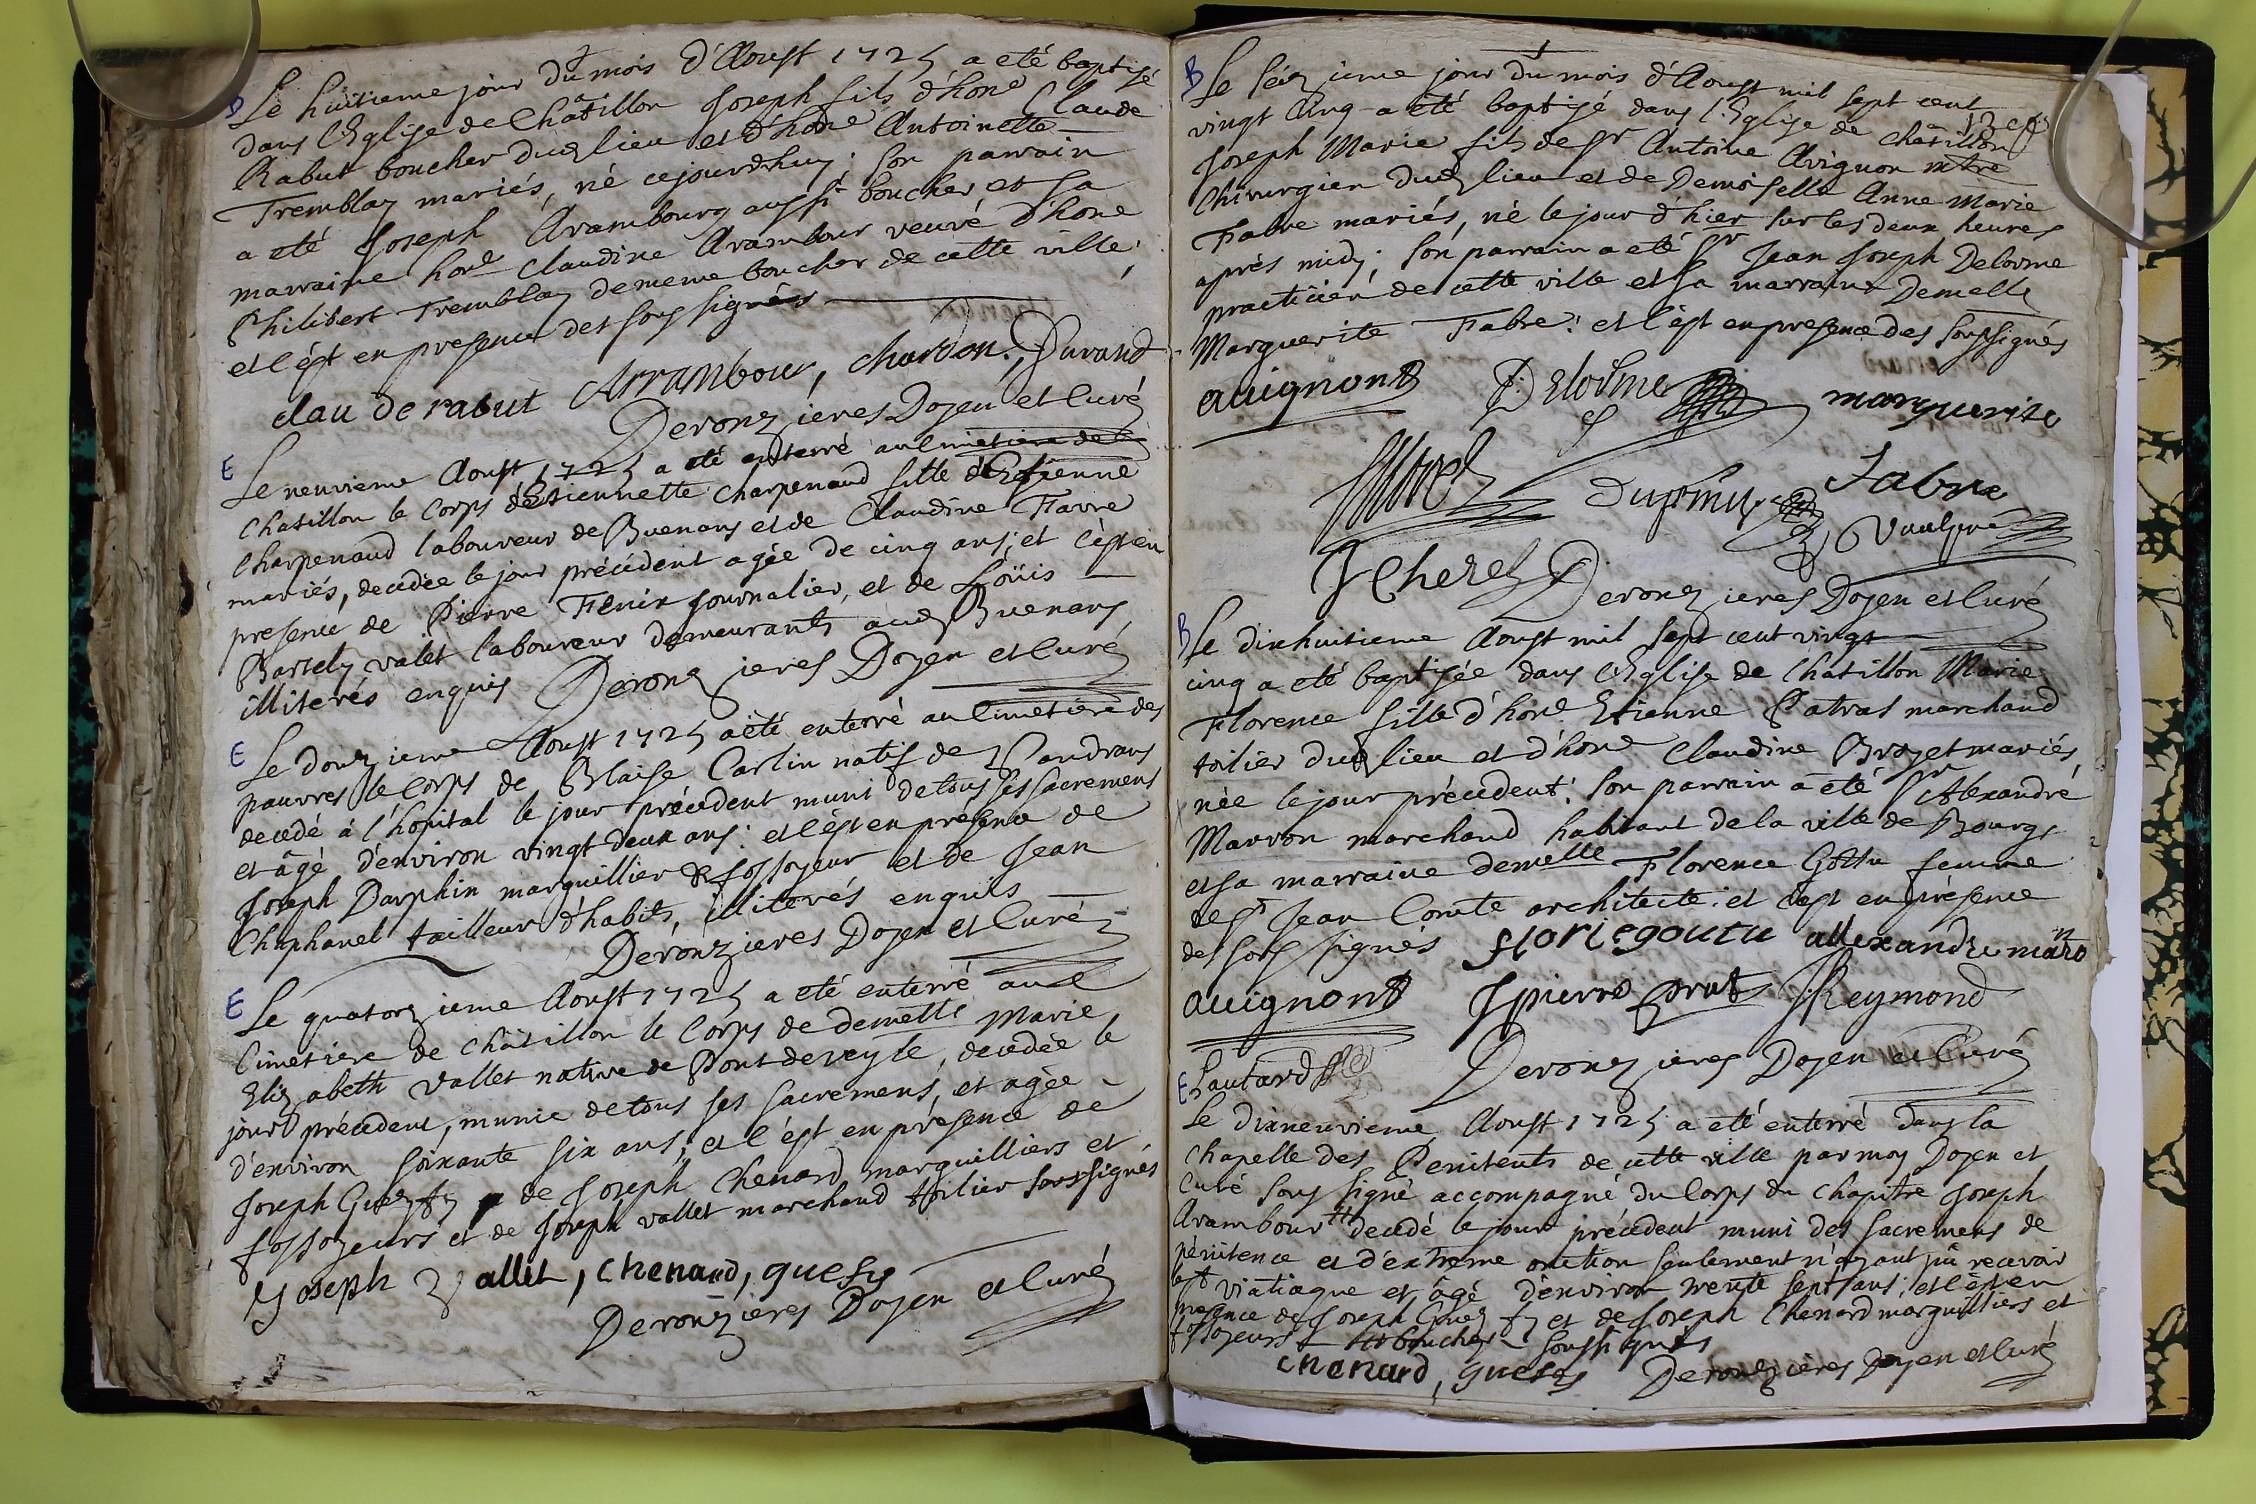 B Le huitieme jour du mois d'Aoust 1725 a eté baptisé
dans l'Eglise de Châtillon Joseph fils d'hone Claude
Rabut boucher dud lieu et d'hone Antoinette
Tremblay mariés, né cejourdhuy: son parrain
a eté Joseph Arambourg aussi boucher et sa
marraine hone Claudine Arambour veuve d'hone
Philibert Tremblay demême boucher de cette ville:
et c'ést en presence des soussignés
claude rabut Arrambour, chardon, Durand
Deronzieres Doyen et Curé
E Le neuvieme Aoust 1725 a eté enterré au Cimetiere de
Chatillon le Corps d'Estiennette Charpenaud fille d'Estienne
Charpenaud laboureur de Buenans et de Claudine Favre
mariés, decedée le jour précédent agée de cinq ans; et c'ést en
presence de Pierre Fenix journalier, et de Loüis
Bartely valet laboureur demeurants aud Buenans
illiterés enquis Deronzieres Doyen et Curé
E Le douzieme Aoust 1725 a eté enterré au Cimetiere des
pauvres le Corps de Blaise Carlin natif de Vandrans
decedé à l'hopital le jour précedent muni de tous ses sacremens
et âgé d'environ vingt deux ans: et c'ést en présence de
Joseph Dauphin marguillier & fossoyeur et de Jean
Chaphanel tailleur d'habits, illiterés enquis
Deronzieres Doyen et Curé
E Le quatorzieme Aoust 1725 a eté enterré au
Cimetiere de châtillon le Corps de demelle Marie
Elizabeth Vallet native de Pontdeveyle, decedée le
jour précédent, munie de tous ses sacremens, et agée
d'environ soixante six ans; et c'ést en présence de
Joseph Guezfy de Joseph Chenard marguilliers et
fossoyeurs et de Joseph vallet marchand toilier soussignés
Joseph Vallet, chenard, guesfy
Deronzieres Doyen et Curé
B Le seizieme jour du mois d'Aoust mil sept cent
vingt cinq a été baptisé dans l'Eglise de châtillon
Joseph Marie fils de Sr Antoine Avignon mtre
Chirurgien dud lieu et de Demoiselle Anne Marie
Fabre mariés, né le jour d'hier sur les deux heures
après midy; son parrain a eté Sr Jean Joseph Delorme
practicien de cette ville et sa marraine Demelle
Marguerite Fabre: et c'ést en presence des soussignés
avignon Delorme marguerite
fabre
Vaulpré
Deronzieres Doyen et Curé
B Le dixhuitieme Aoust mil sept cent vingt
cinq a eté baptisée dans l'Eglise de Chatillon Marie
Florence fille d'hone Etienne Patras marchand
toilier dud lieu et d'hone Claudine Broyet mariés,
née le jour précedent: son parrain a eté Sr Alexandre
Marron marchand habitant de la ville de Bourg
et sa marraine demelle Florence Gottu femme
de Sr Jean Comte architecte: et c'est en présence
des sous signés florie goutu allexandre maron
avignon Jpierre JReymond
Lautard Deronzieres Doyen et Curé
E Le dixneuvieme Aoust 1725 a eté enterré dans la
chapelle des Penitents de cette ville par moy Doyen et
Curé sous signé accompagné du Corps du chapitre Joseph
Arambour # decedé le jour précedent muni des sacremens de
pénitence et d'extreme onction seulement n'ayant pu recevoir
le St viatique et âgé d'environ trente sept ans: et c'ést en
presence de Joseph Guezfy et de Joseph Chenard marguilliers et
fossoyeurs # boucher soussignés
chenard, guesfy Deronzières Doyen et Curé